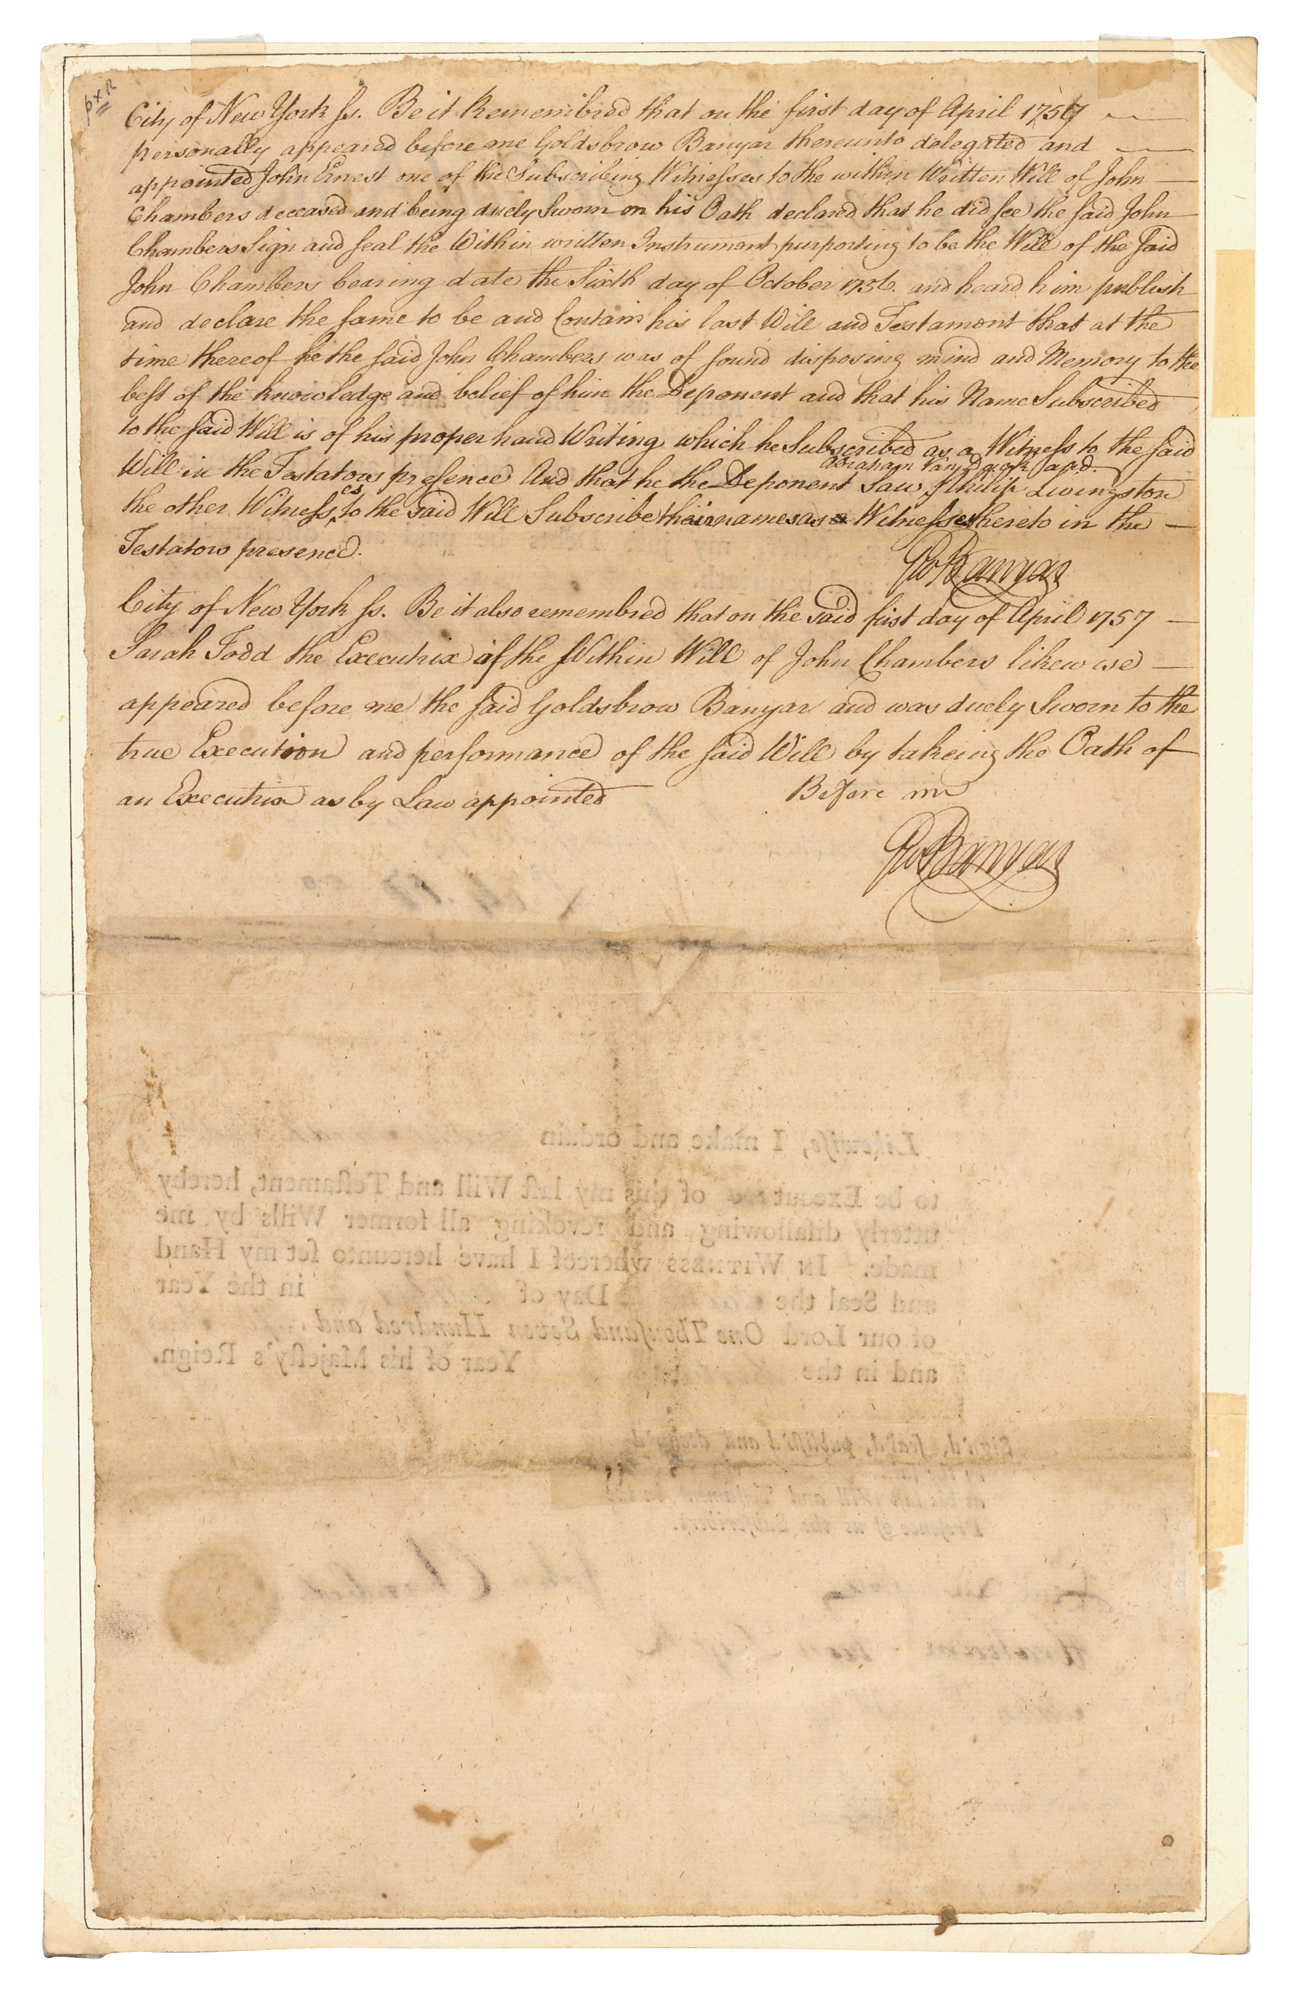 pxR
City of New York ss. Be it Remembred that on the first day of April 1757
personally appeared before me Goldsbrow Banyar thereunto delegated and
appointed John Ernest one of the Subscribing Witnesses to the within Written Will of John
Chambers deceased and being duely Sworn on his Oath declared that he did see the said John
Chambers Sign and seal the Within written Instrument purporting to be the Will of the said
John Chambers bearing date the Sixth day of October 1756. and heard him publish
and declare the same to be and Contain his last Will and Testament that at the
time thereof he the said John Chambers was of sound disposing mind and Memory to the
best of the knowledge and belief of him the Deponent and that his Name Subscribed
to the said Will is of his proper hand Writing which he Subscribed as a Witness to the said
Abraham Van and
Will in the Testators presence And that he the Deponent Saw Philip Livingston
the other Witnesses to the said Will Subscribe their names as Witnesses thereto in the
Testators presence.
Go Banyar
City of New York ss. Be it also remembred that on the said first day of April 1757
Sarah Todd the Executrix of the Within Will of John Chambers likewise
appeared before me the said Goldsbrow Banyar and was duely Sworn to the
true Execution and performance of the said Will by takeing the Oath of
an Executrix as by Law appointed Before me
Go Banyar
Likewiſe, I make and ordain
to be Execut of this my laſt Will and Teſtament, hereby
utterly diſallowing and revoking all former Wills by me
made. IN WITNESS whereof I have hereunto ſet my Hand
and Seal the Day of in the Year
of our Lord One Thouſand Seven Hundred and
and in the Year of his Majeſty's Reign.
Sign'd, ſeal'd, publiſh'd and declar'd
as his laſt Will and Teſtament, in the
Preſence of us the Subſcribers.
John Chambers